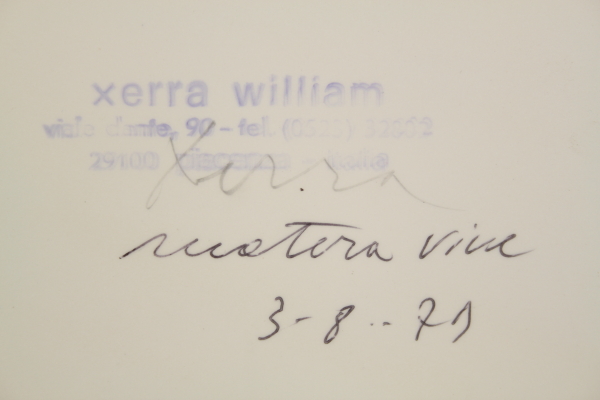 xerra william
viale dante, 90 - tel. (0523)
29100 piacenza - italia
Xerra
vive
3-8-